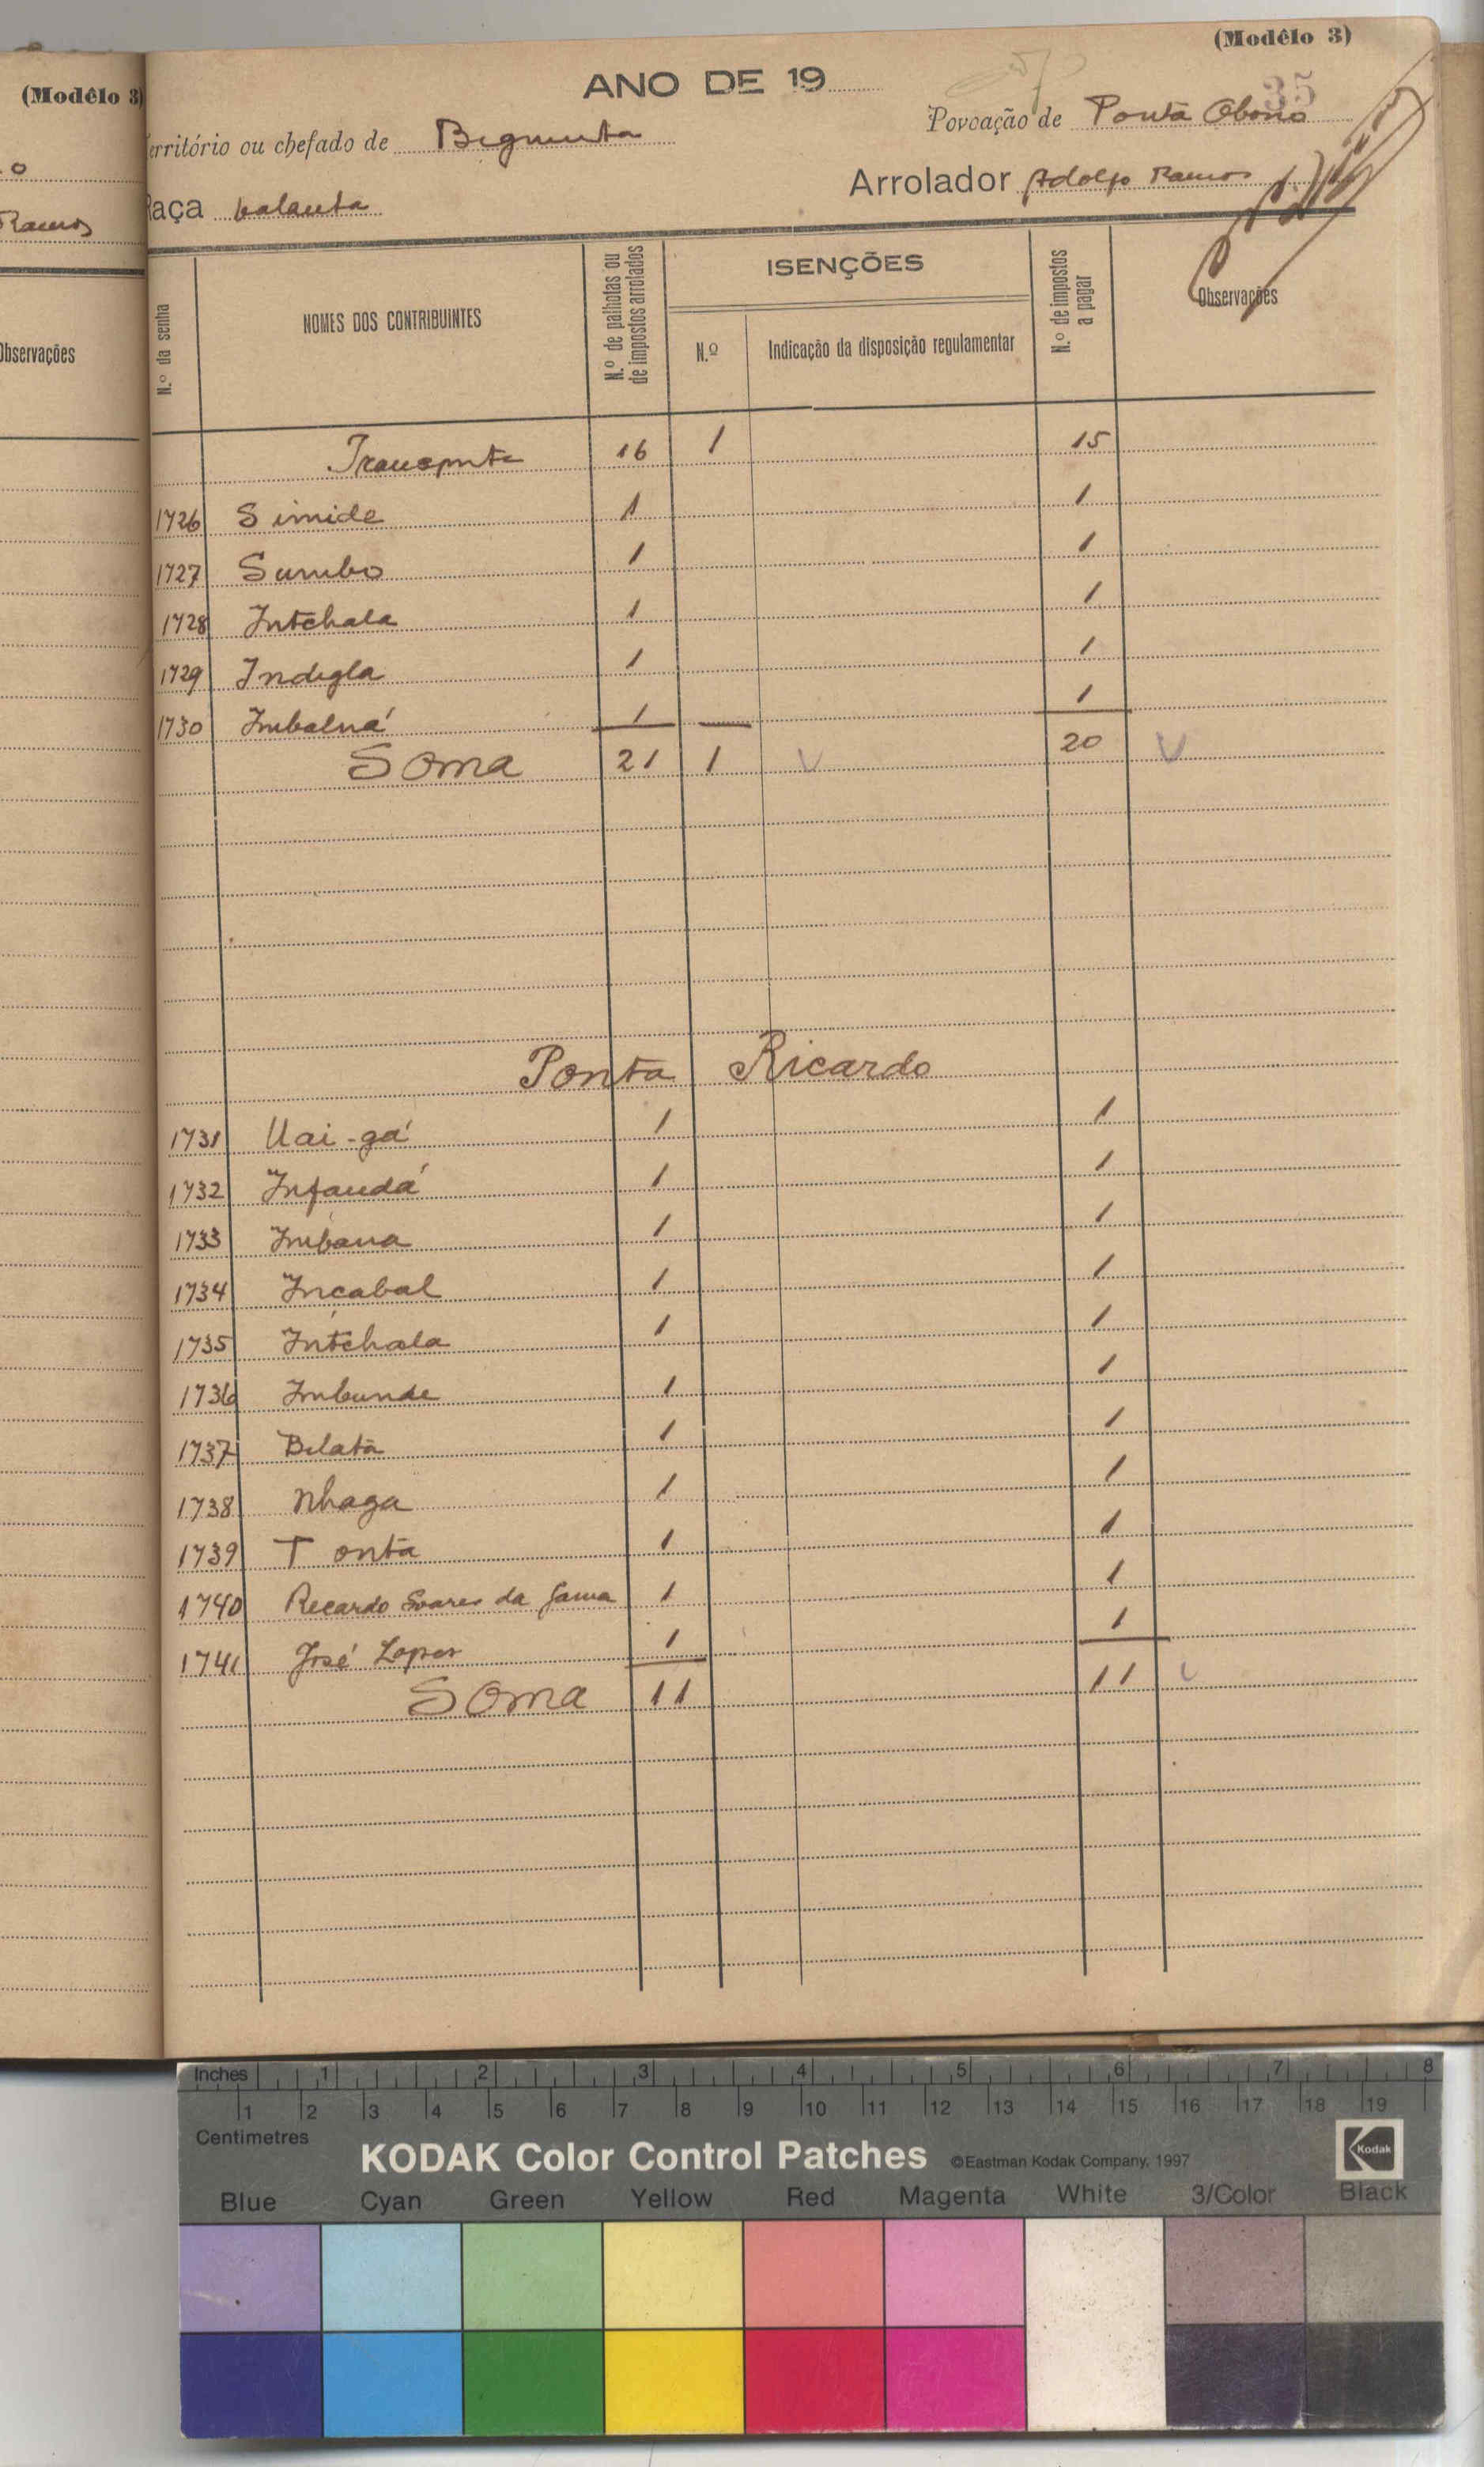 (Modêlo 3)
o
Ramos
Observações
(Modêlo 3)
35
ANO DE 19
erritório ou chefado de Bigmenta
Povoação de Ponta Obono
Raça balanta
Arrolador Adolfo Ramos
N.º da senha
NOMES DOS CONTRIBUINTES
N.º de palhotas ou de impostos arrolados
ISENÇÕES
N.º
Indicação da disposição regulamentar
N.º de impostos a pagar
Observações
Transporte 16 1 15
1726 Simide 1 1
1727 Sumbo 1 1
1728 Intchala 1 1
1729 Indigla 1 1
1730 Imbalná 1 1
Soma 21 1 20
Ponta Ricardo
1731 Uai-gá 1 1
1732 Infandá 1 1
1733 Imbana 1 1
1734 Incabal 1 1
1735 Intchala 1 1
1736 Imbunde 1 1
1737 Bilata 1 1
1738 Nhaga 1 1
1739 Tonta 1 1
1740 Recardo Soares da Gama 1 1
1741 José Lopes 1 1
Soma 11 11
Inches 1 2 3 4 5 6 7 8
1 2 3 4 5 6 7 8 9 10 11 12 13 14 15 16 17 18 19
Centimetres
KODAK Color Control Patches ©Eastman Kodak Company, 1997 Kodak
Blue Cyan Green Yellow Red Magenta White 3/Color Black